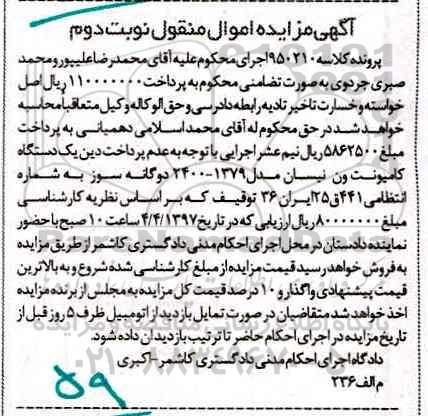 آگهی مزایده اموال منقول نوبت دوم
پرونده کلاسه ۹۵۰۲۱۰اجرای محکوم علیه آقای محمدرضاعلیپورومحمد
صبری جردوی به صورت تضامنی محکوم به پرداخت ۱۱۰۰۰۰۰۰۰ریال اصل
خواسته وخسارت تاخیر تادیه رابطه دادرسی وحق الوکاله وکیل متعاقبا محاسبه
خواهد شد در حق محکوم له آقای محمد اسلامی دهمیانی به پرداخت
مبلغ ۵۸۶۲۵۰۰ ریال نیم عشر اجرایی با توجه به عدم پرداخت دین یک دستگاه
کامیونت ون نیسان مدل۱۳۷۹-۲۴۰۰ دوگانه سوز به شماره
انتظامی ۴۴۱ق۲۵ایران ۳۶ توقیف که بر اساس نظریه کارشناسی
مبلغ ۸۰۰۰۰۰۰۰ریال ارزیابی که در تاریخ ۴/۴/۱۳۹۷ ساعت ۱۰ صبح باحضور
نماینده دادستان در محل اجرای احکام مدنی دادگستری کاشمر از طریق مزایده
به فروش خواهد رسید قیمت مزایده از مبلغ کارشناسی شده شروع و به بالاترین
قیمت پیشنهادی واگذار و ۱۰ درصد قیمت کل مزایده به مجلس از برنده مزایده
اخذ خواهد شد متقاضیان در صورت تمایل بازدید از اتومبیل ظرف ۵ روز قبل از
تاریخ مزایده در اجرای احکام حاضر تا ترتیب بازدیدان داده شود.
دادگاه اجرای احکام مدنی دادگستری کاشمر - اکبری
م الف ۲۳۶
۵۹
۰۲۱-۸۸۳۴۹۶۷۰